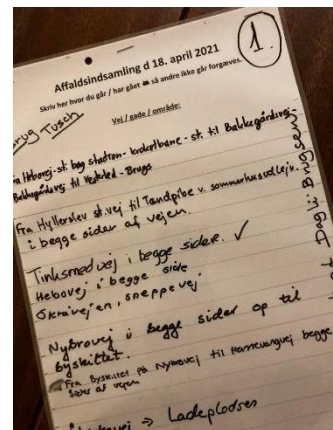 1.
Affaldsindsamling d 18. april 2021
Skriv her hvor du går / har gået så andre ikke går forgæves.
Brug Tusch
Vej / gade / område:
Fra Hebovej - st. bag stadion - kirketbane - st. til Bakkegårdsvej -
Bakkegårdsvej til - Brugs
Fra Hyllerslev st.vej til Tandpibe v. sommerhusudlejn.
i begge sider af vejen.
Tinksmedvej i begge sider. ✓
Hebovej i begge side
Skråvejen, sneppevej
Nybrovej i begge sider op til
byskiltet.
Fra byskiltet på Nybrovej til begge
sider af vejen
→ Ladepladsen
Dagli' Brugsen